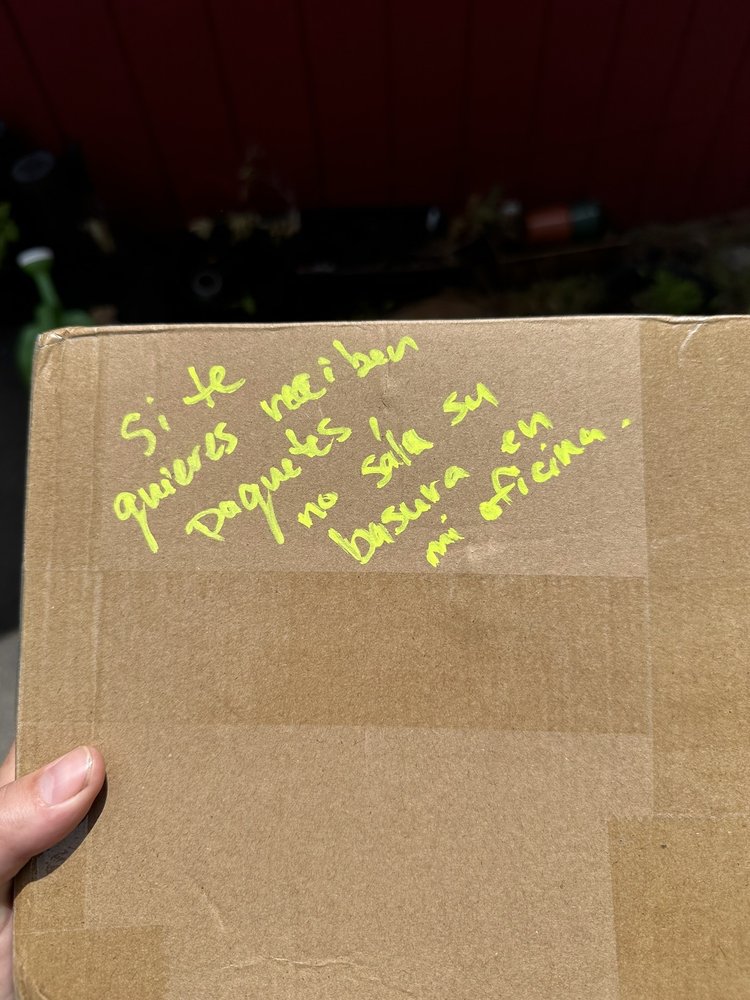 Si te
quieres reciben
paquetes,
no sála su
basura en
mi oficina.